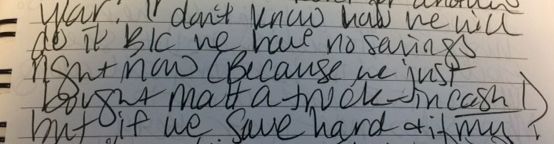 year. I don't know how we will
do it b/c we have no savings
right now (Because we just
bought Matt a truck - in cash!)
but if we save hard & if my